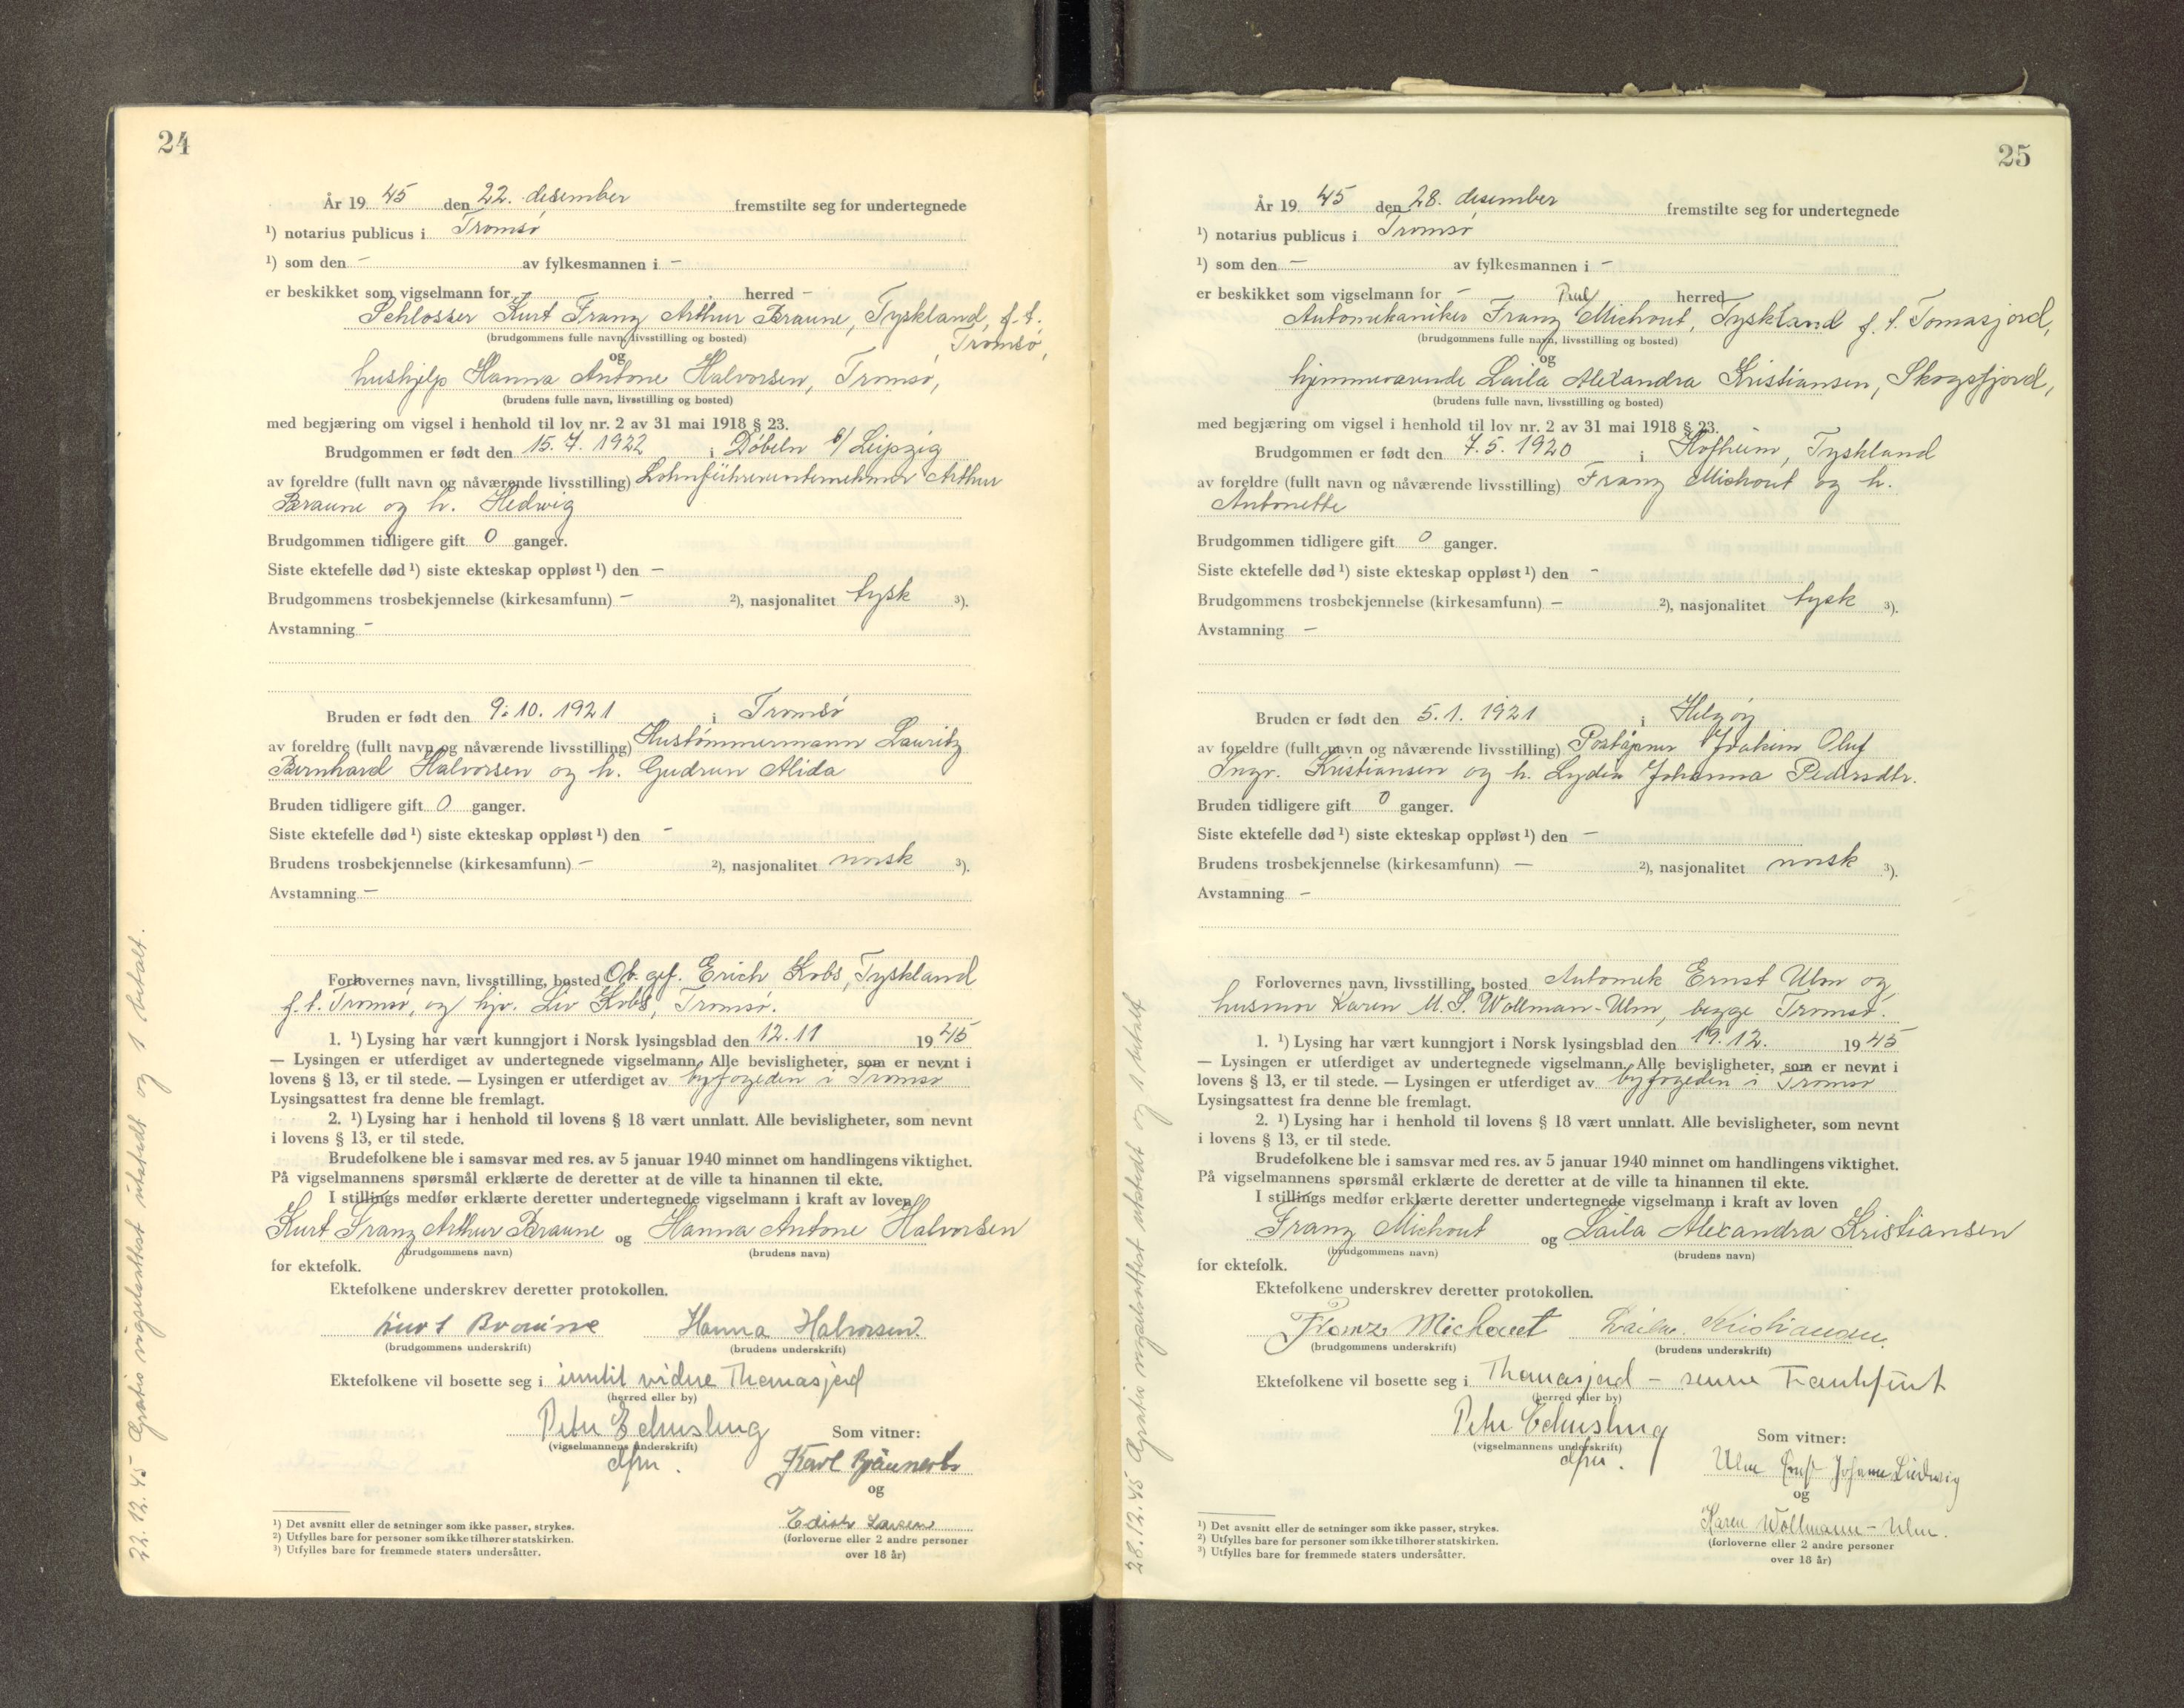 24
År 19 45 den 22. desember fremstilte seg for undertegnede
¹) notarius publicus i Tromsø
¹) som den – av fylkesmannen i –
er beskikket som vigselmann for – herred –
Schlosser Kurt Franz Arthur Braune, Tyskland, f.t.
Tromsø,
(brudgommens fulle navn, livsstilling og bosted)
og
hushjelp Hanna Antone Halvorsen, Tromsø,
(brudens fulle navn, livsstilling og bosted)
med begjæring om vigsel i henhold til lov nr. 2 av 31 mai 1918 § 23.
Brudgommen er født den 15.7.1922 i Döbeln b/ Leipzig
av foreldre (fullt navn og nåværende livsstilling) Arthur
Braune og h. Hedwig
Brudgommen tidligere gift 0 ganger.
Siste ektefelle død ¹) siste ekteskap oppløst ¹) den –
Brudgommens trosbekjennelse (kirkesamfunn) – ²), nasjonalitet tysk ³).
Avstamning –
Bruden er født den 9.10.1921 i Tromsø
av foreldre (fullt navn og nåværende livsstilling) Hustømmermann Lauritz
Bernhard Halvorsen og h. Gudrun Alida
Bruden tidligere gift 0 ganger.
Siste ektefelle død ¹) siste ekteskap oppløst ¹) den –
Brudens trosbekjennelse (kirkesamfunn) – ²), nasjonalitet norsk ³).
Avstamning –
Forlovernes navn, livsstilling, bosted Ob. gef. Erich Kobs, Tyskland
f.t. Tromsø, og hjv. Liv Kobs, Tromsø.
1. ¹) Lysing har vært kunngjort i Norsk lysingsblad den 12.11 19 45
— Lysingen er utferdiget av undertegnede vigselmann. Alle bevisligheter, som er nevnt i
lovens § 13, er til stede. — Lysingen er utferdiget av byfogeden i Tromsø
Lysingsattest fra denne ble fremlagt.
2. ¹) Lysing har i henhold til lovens § 18 vært unnlatt. Alle bevisligheter, som nevnt
i lovens § 13, er til stede.
Brudefolkene ble i samsvar med res. av 5 januar 1940 minnet om handlingens viktighet.
På vigselmannens spørsmål erklærte de deretter at de ville ta hinannen til ekte.
I stillings medfør erklærte deretter undertegnede vigselmann i kraft av loven
Kurt Franz Arthur Braune og Hanna Antone Halvorsen
(brudgommens navn) (brudens navn)
for ektefolk.
Ektefolkene underskrev deretter protokollen.
Kurt Braune Hanna Halvorsen
(brudgommens underskrift) (brudens underskrift)
Ektefolkene vil bosette seg i inntil videre Thomasjord
(herred eller by)
Som vitner:
(vigselmannens underskrift)
Karl
og
Edith Larsen
(forloverne eller 2 andre personer
over 18 år)
¹) Det avsnitt eller de setninger som ikke passer, strykes.
²) Utfylles bare for personer som ikke tilhører statskirken.
³) Utfylles bare for fremmede staters undersåtter.
22.12.45 Gratis vigselsattest utstedt og 1 betalt.
25
År 19 45 den 28. desember fremstilte seg for undertegnede
¹) notarius publicus i Tromsø
¹) som den – av fylkesmannen i –
er beskikket som vigselmann for – herred
Paul
Automekaniker Franz Michout, Tyskland f.t. Tomasjord,
(brudgommens fulle navn, livsstilling og bosted)
og
hjemmeværende Laila Alexandra Kristiansen, Skogsfjord,
(brudens fulle navn, livsstilling og bosted)
med begjæring om vigsel i henhold til lov nr. 2 av 31 mai 1918 § 23.
Brudgommen er født den 7.5.1920 i Hofheim, Tyskland
av foreldre (fullt navn og nåværende livsstilling) Franz Michout og h.
Antonette
Brudgommen tidligere gift 0 ganger.
Siste ektefelle død ¹) siste ekteskap oppløst ¹) den –
Brudgommens trosbekjennelse (kirkesamfunn) – ²), nasjonalitet tysk ³).
Avstamning –
Bruden er født den 5.1.1921 i Helgøy
av foreldre (fullt navn og nåværende livsstilling) Poståpner Joakim Oluf
Ingv. Kristiansen og h. Lydia Johanna Pedersdtr.
Bruden tidligere gift 0 ganger.
Siste ektefelle død ¹) siste ekteskap oppløst ¹) den –
Brudens trosbekjennelse (kirkesamfunn) – ²), nasjonalitet norsk ³).
Avstamning –
Forlovernes navn, livsstilling, bosted Automek Ernst Ulm og
husmor Karen M. S. Wollman-Ulm, begge Tromsø.
1. ¹) Lysing har vært kunngjort i Norsk lysingsblad den 19.12. 19 45
— Lysingen er utferdiget av undertegnede vigselmann. Alle bevisligheter, som er nevnt i
lovens § 13, er til stede. — Lysingen er utferdiget av byfogeden i Tromsø
Lysingsattest fra denne ble fremlagt.
2. ¹) Lysing har i henhold til lovens § 18 vært unnlatt. Alle bevisligheter, som nevnt
i lovens § 13, er til stede.
Brudefolkene ble i samsvar med res. av 5 januar 1940 minnet om handlingens viktighet.
På vigselmannens spørsmål erklærte de deretter at de ville ta hinannen til ekte.
I stillings medfør erklærte deretter undertegnede vigselmann i kraft av loven
Franz Michout og Laila Alexandra Kristiansen
(brudgommens navn) (brudens navn)
for ektefolk.
Ektefolkene underskrev deretter protokollen.
Franz Michout Laila Kristiansen
(brudgommens underskrift) (brudens underskrift)
Ektefolkene vil bosette seg i Thomasjord – senere Frankfurt
(herred eller by)
Som vitner:
(vigselmannens underskrift)
Ulm Ernst Johann Ludwig
og
Karen Wollmann-Ulm.
(forloverne eller 2 andre personer
over 18 år)
¹) Det avsnitt eller de setninger som ikke passer, strykes.
²) Utfylles bare for personer som ikke tilhører statskirken.
³) Utfylles bare for fremmede staters undersåtter.
28.12.45 Gratis vigselsattest utstedt og 1 betalt